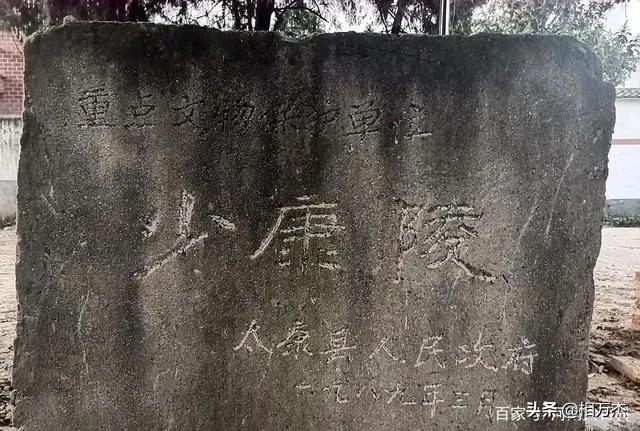 重点文物保护单位
少康陵
太康县人民政府
一九八九年三月
头条 @相万杰